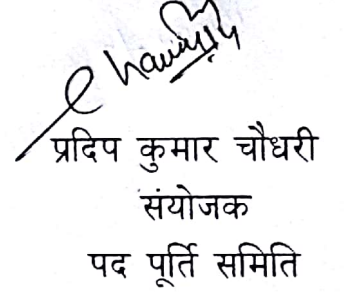 प्रदिप कुमार चौधरी
संयोजक
पद पूर्ति समिति